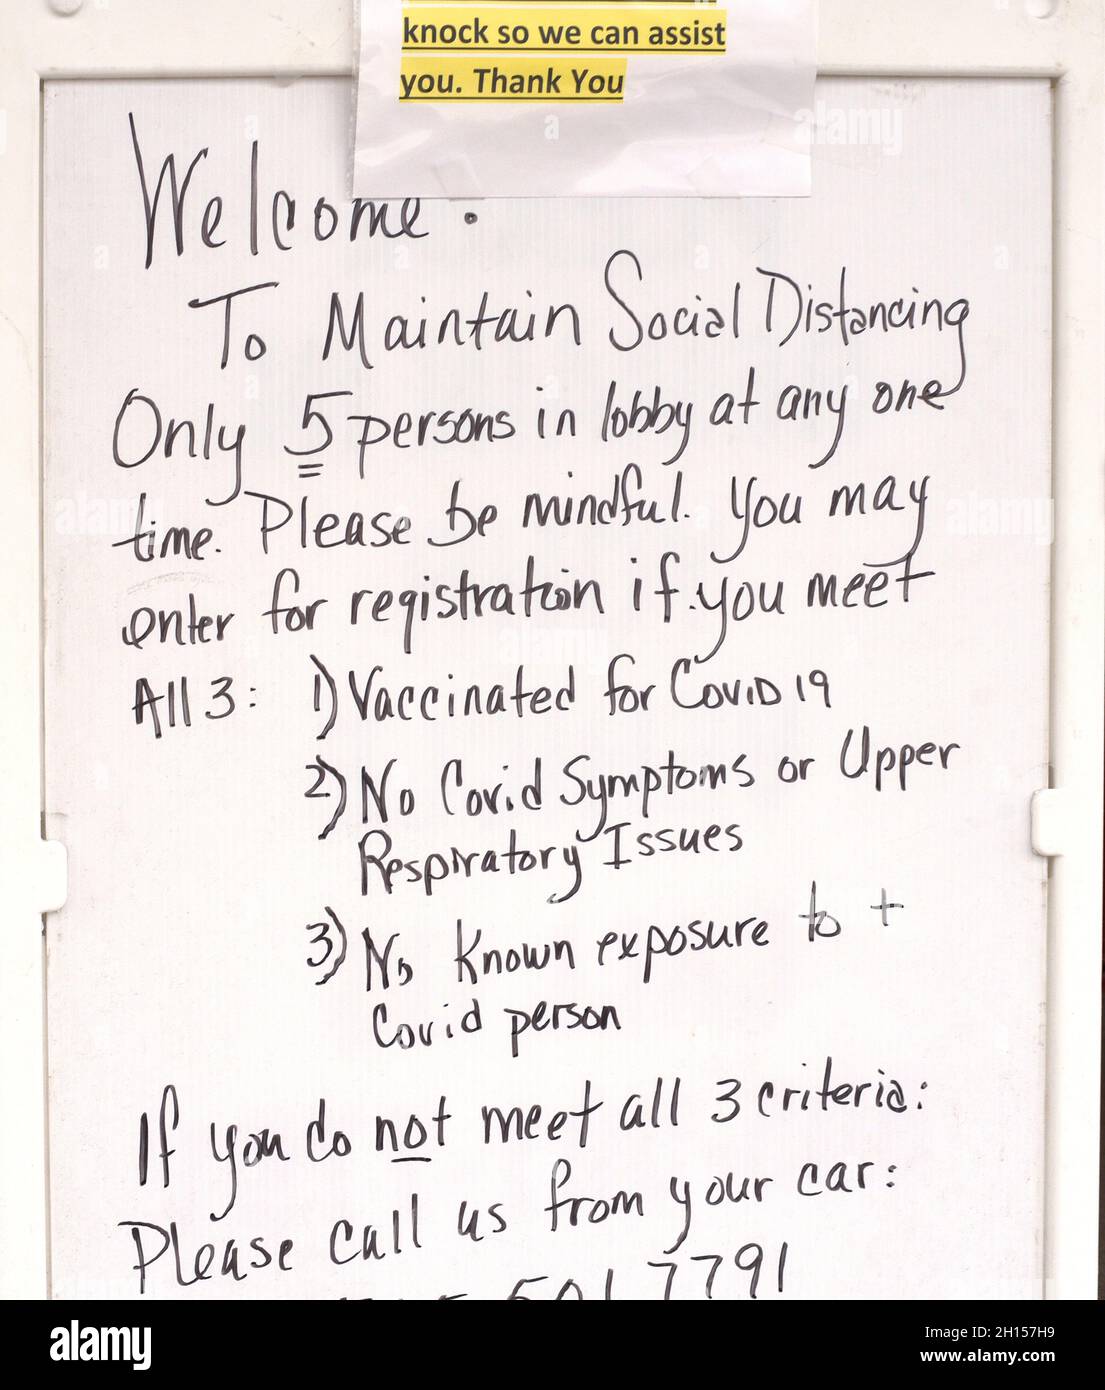 knock so we can assist
you. Thank You
Welcome.
To Maintain Social Distancing
Only 5 persons in lobby at any one
time. Please be mindful. You may
enter for registration if you meet
All 3: 1) Vaccinated for Covid 19
2) No Covid Symptoms or Upper
Respiratory Issues
3) No Known exposure to +
Covid person
If you do not meet all 3 criteria:
Please call us from your car:
501 7791
alamy
Image ID: 2H157H9
www.alamy.com